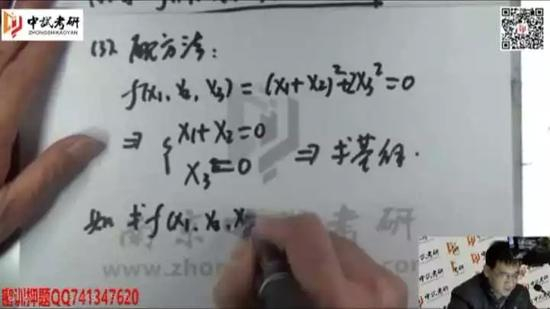 中试考研
ZHONGSHIKAOYAN
(3) 配方法:
f(x₁, x₂, x₃) = (x₁+x₂)²+2x₃² = 0
⇒ { x₁+x₂=0
x₃=0 ⇒ 求基础解.
如 求f(x₁, x₂, x
考研
www.zhongs
密训押题QQ741347620